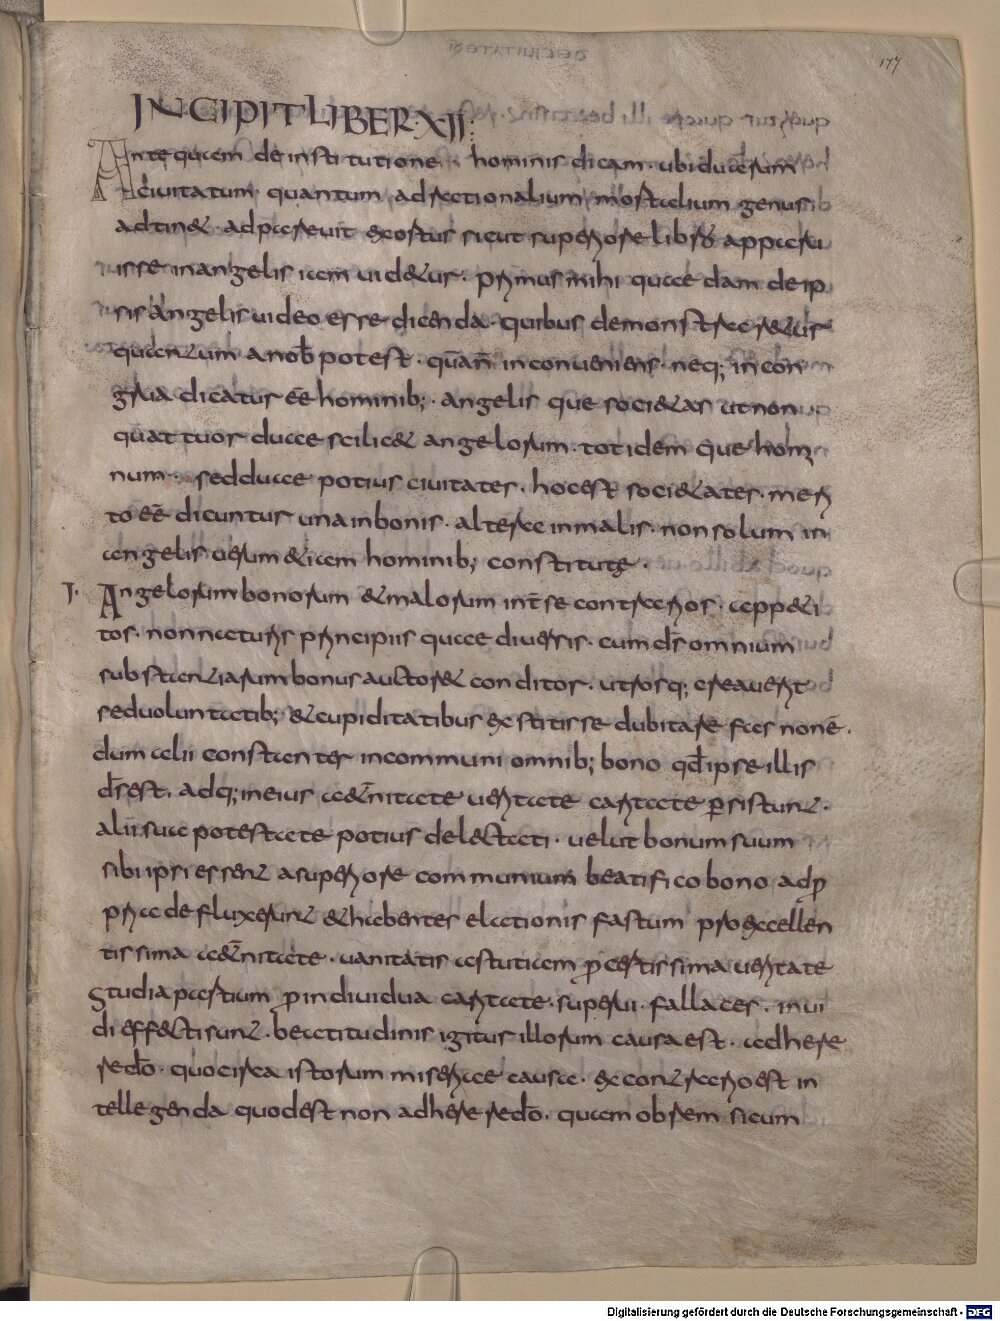 177
INCIPIT LIBER·XII·
Ante quam de institutione· hominis dicam· ubi duarum
civitatum quantum ad rationalium mortalium genus
adtinet adparebit exortus sicut superiore libro apparu
isse in angelis iam videtur· primus mihi quaedam de ip
sis angelis video esse dicenda quibus demonstraretur
quantum a nob potest· quā n̄ inconveniens neq; incon
grua dicatur eē hominib;· angelis que societas ut non
quattuor duae scilicet angelorum· totidem que homi
num· sed duae potius civitates· hoc est societates· meri
to eē dicuntur una in bonis· altera in malis· non solum in
angelis verum etiam hominib; constitutę·
I· Angelorum bonorum et malorum int̄ se contrarios· appeti
tos· non naturis principiis quae diversis· cum d̄s omnium
substantiarum bonus auctor et conditor· utrosq; creaverit
sed voluntatib; et cupiditatibus extitisse dubitare fas nonē·
dum alii constanter in communi omnib; bono qđ ipse illis
d̄s est· adq; in eius aet̄nitate veritate caritate ꝑsistunt·
alii sua potestate potius delectati· velut bonum suum
sibi ipsi essent a superiore communium beatifico bono adp
pria defluxerunt et habentes elationis fastum pro excellen
tissima aet̄nitate· vanitatis astutiam ꝓ certissima veritate
studia partium ꝓ individua caritate· superui· fallaces· invi
di effecti sunt· beatitudinis igitur illorum causa est· adhere
re dō· quocirca istorum miseriae causa· ex contrario est in
tellegenda quod est non adherere dō· quam ob rem si cum
Digitalisierung gefördert durch die Deutsche Forschungsgemeinschaft - DFG